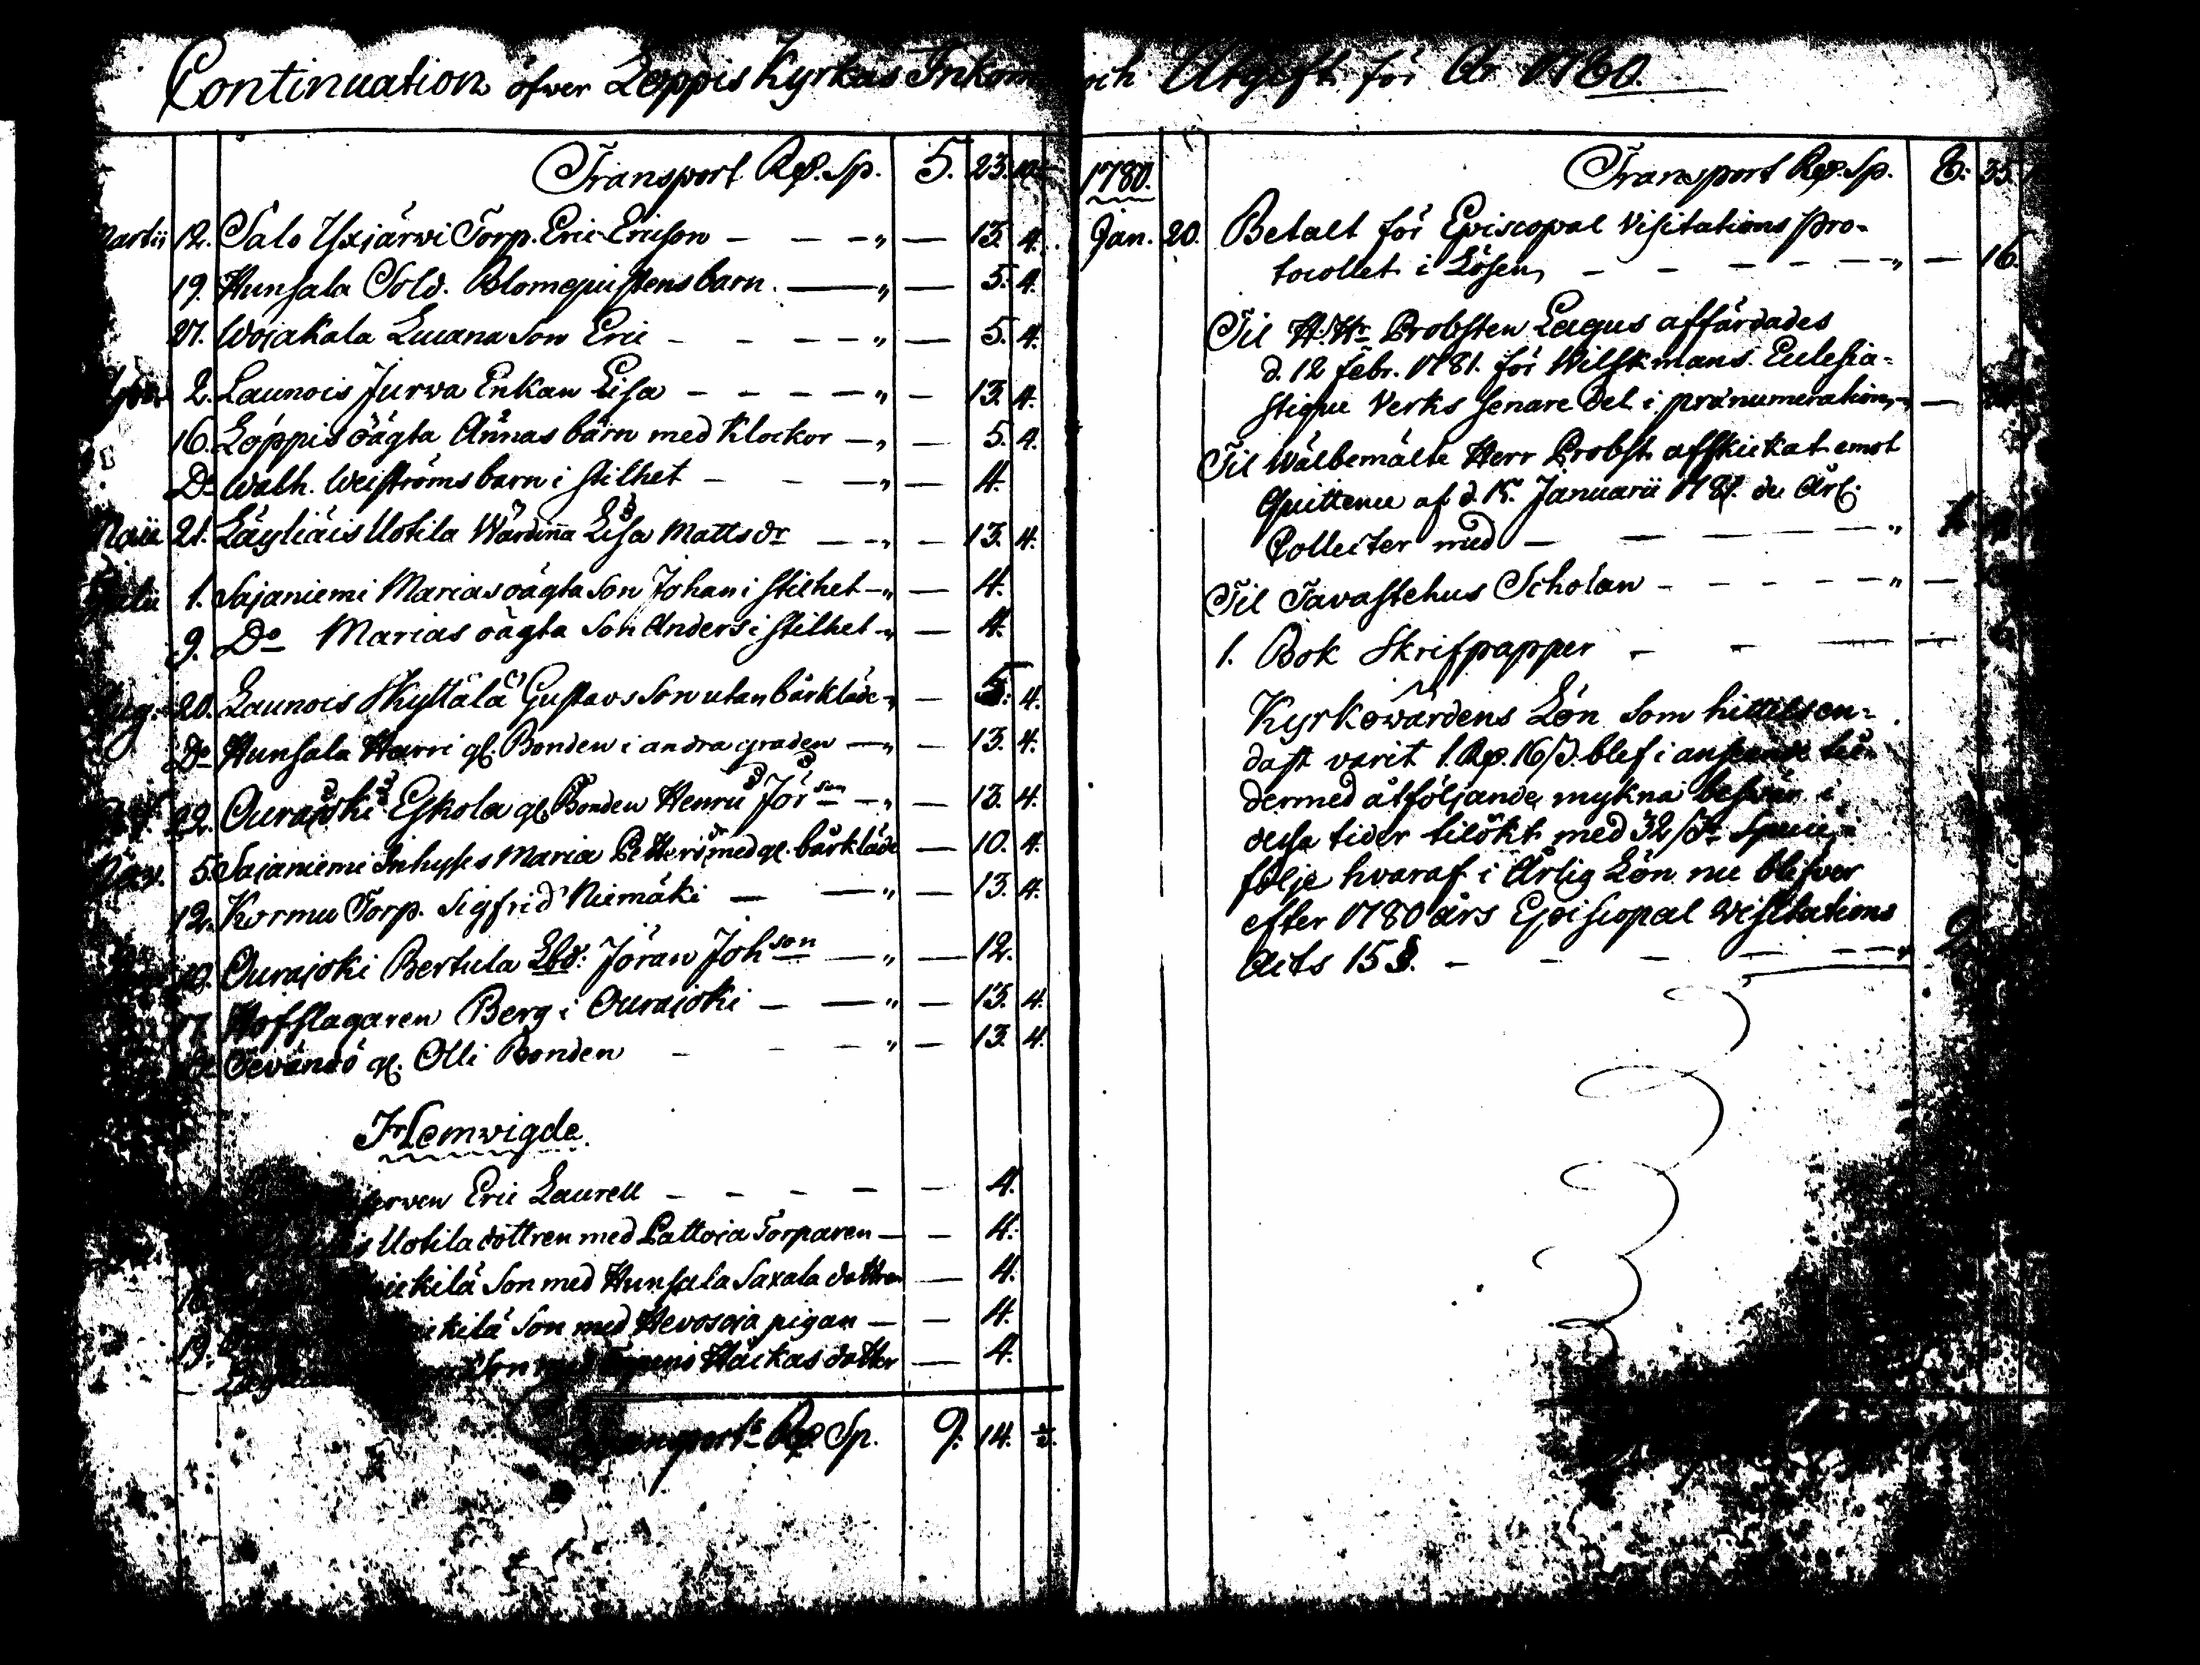 Continuation öfwer Loppis Kyrkas Inkom och Utgift för År 1780.
Transport Rd. Sp. 5. 23.
Martii 12. Salo Yxjärwi Torp. Eric Ericson — — — " — 13. 4.
19. Hunsala Sold. Blomquistens barn. — " — 5. 4.
27. Wojakala Luuana Son Eric — — — — " — 5. 4.
2. Launois Jurwa Enkan Lisa — — — — " — 13. 4.
16. Loppis oägta Annas barn med Klockor — " — 5. 4.
Do Walb. Weiströms barn i stilhet — — — " — 4.
Maii 21. Läyliäis Uotila Wärdinna Lisa Mattsdr — — " — 13. 4.
1. Sajaniemi Marias oägta Son Johan i stilhet — " — 4.
9. Do Marias oägta Son Anders i stilhet — " — 4.
Aug. 20. Launois Skyttälä Gustavs Son utan bårkläde " — 5. 4.
Do Hunsala Harri gl. Bonden i andra graden — " — 13. 4.
22. Ourajoki Eskola gl. Bonden Henric Jörson — " — 13. 4.
5. Sajaniemi Inhyses Maria Petters dr med gl. bårkläde — 10. 4.
12. Kormu Torp. Sigfrid Niemäki — — " — 13. 4.
Ourajoki Bertula Jöran Johson — " — 12.
17. Hofslagaren Berg i Ourajoki — — " — 13. 4.
Do Tevändö gl. Olli Bonden — — — " — 13. 4.
Hemwigde
Eric Laurell — — — — — 4.
Uotila dottren med Pattoja Torparen — — 4.
Son med Hunsala Saxala dottren — 4.
Son med Hevosoja pigan — — 4.
19. Son Häckas dotter — 4.
Transport Rd. Sp. 9. 14.
1780. Transport Rd. Sp. 8. 35.
Jan. 20. Betalt för Episcopal Visitations Pro-
tocollet i Lösen, — — — — — " — 16.
Til H. Hr Probsten Lagus affärdades
d. 12 Febr. 1781. för Wilskmans Ecclesia-
stique Verks senare Del i prænumeration, —
Til Wälbemälte Herr Probst afskickat emot
Quittence af d. 15. Januarii 1781. de Årl.
Collecter med — — — — — "
Til Tavastehus Scholan — — — — — " —
1. Bok Skrifpapper — — — — 6
Kyrkowärdens Lön som hittils en-
dast varit 1. Rd. 16 s. blef i anseende til
dermed åtföljande mykna beswär i
dessa tider tilökt med 32 s. Specie,
följe hvaraf i Årlig Lön nu blifver
efter 1780 års Episcopal Visitations
Acts 15 §. — — — — — " 2